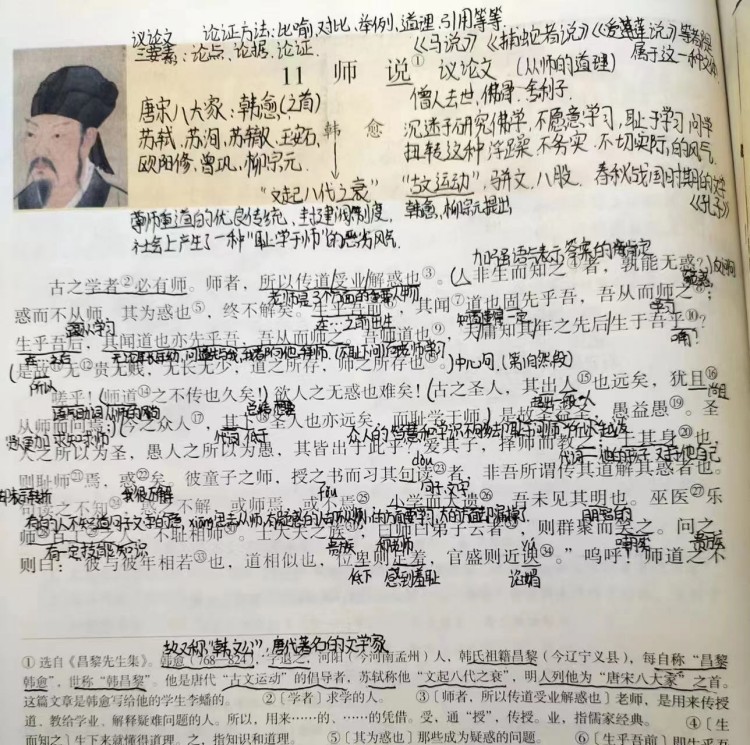 议论文 论证方法:比喻,对比,举例,道理,引用等等
三要素:论点、论据、论证.
《马说》《捕蛇者说》《爱莲说》等都是
属于这一种文体
11 师 说① 议论文 (从师的道理)
韩 愈
唐宋八大家:韩愈(之首)
苏轼、苏洵、苏辙、王安石、
欧阳修、曾巩、柳宗元.
僧人去世,佛牌、舍利子.
沉迷于研究佛学,不愿意学习,耻于学习、问学
扭转这种浮躁、不务实、不切实际,的风气.
"文起八代之衰"
"古文运动",骈文、八股. 春秋战国时期的文学
韩愈、柳宗元提出
《孔子》
尊师重道的优良传统、封建阶级制度.
社会上产生了一种"耻学于师"的恶劣风气.
古之学者②必有师。师者,所以传道受业解惑也③。(人非生而知之④者,孰能无惑?)
惑而不从师,其为惑也⑤,终不解矣。生乎吾前⑥,其闻⑦道也固先乎吾,吾从而师之⑧;
在…之前出生
学习
生乎吾后,其闻道也亦先乎吾,吾从而师之。吾师道也⑨,夫庸知其年之先后生于吾乎⑩?
在…之后
(是故⑪无⑫贵无贱,无长无少,道之所存,师之所存也⑬。)中心句.(第1自然段)
所以
嗟乎!(师道⑭之不传也久矣!)欲人之无惑也难矣!(古之圣人,其出人⑮也远矣,犹且⑯
从师而问焉;)(今之众人⑰,其下⑱圣人也亦远矣,而耻学于师;)是故圣益圣,愚益愚⑲。圣
代词 低于
人之所以为圣,愚人之所以为愚,其皆出于此乎?爱其子,择师而教之;于其身⑳也,
dòu
则耻师㉑焉,惑㉒矣。彼童子之师,授之书而习其句读㉓者,非吾所谓传其道解其惑者也。
fǒu
句读之不知㉔,惑之不解,或师焉,或不焉㉕,小学而大遗㉖,吾未见其明也。巫医㉗乐
师㉘百工㉙之人,不耻相师㉚。士大夫之族㉛,曰师曰弟子云者㉜,则群聚而笑之。问之,
有一定技能知识 贵族
则曰:"彼与彼年相若㉝也,道相似也,位卑则足羞,官盛则近谀㉞。"呜呼!师道之不
低下 感到羞耻 谄媚
故又称"韩文公",唐代著名的文学家
① 选自《昌黎先生集》。韩愈(768—824),字退之,河阳(今河南孟州)人,韩氏祖籍昌黎(今辽宁义县),每自称"昌黎
韩愈",世称"韩昌黎"。他是唐代"古文运动"的倡导者,苏轼称他"文起八代之衰",明人列他为"唐宋八大家"之首。
这篇文章是韩愈写给他的学生李蟠的。 ②〔学者〕求学的人。 ③〔师者,所以传道受业解惑也〕老师,是用来传授
道、教给学业、解释疑难问题的人。所以,用来……的、……的凭借。受,通"授",传授。业,指儒家经典。 ④〔生
而知之〕生下来就懂得道理。之,指知识和道理。 ⑤〔其为惑也〕那些成为疑惑的问题。 ⑥〔生乎吾前〕即生乎吾